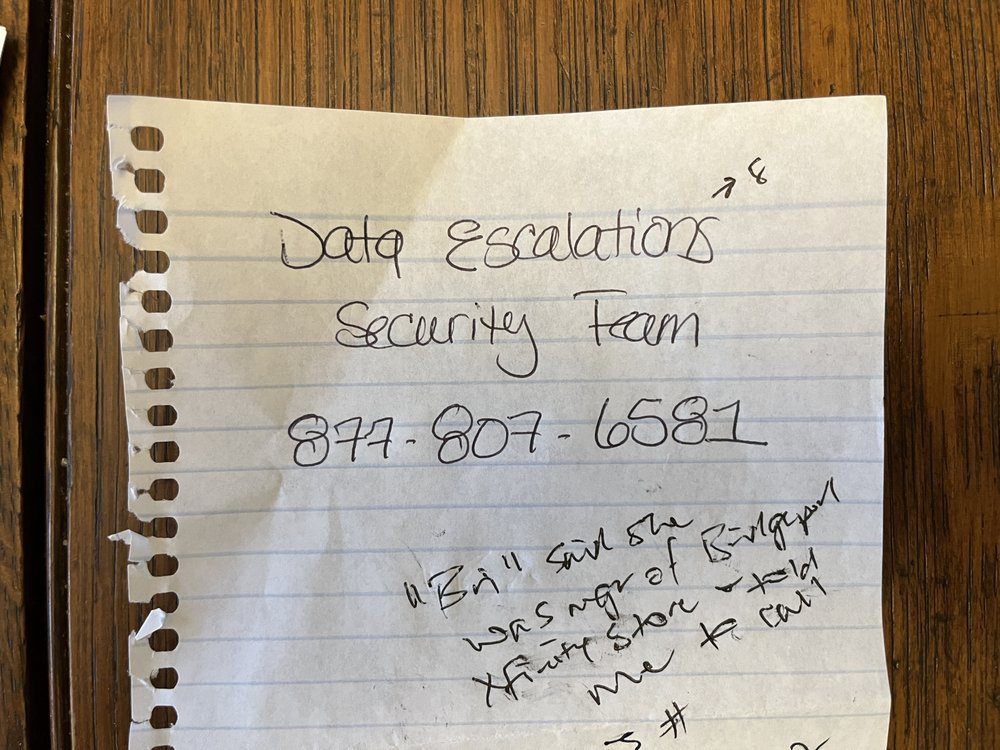 ↗ 8
Data Escalations
Security Team
877-807-6581
"Bri" said she
was mgr of Bridgeport
Xfinity store - told
me to call
#